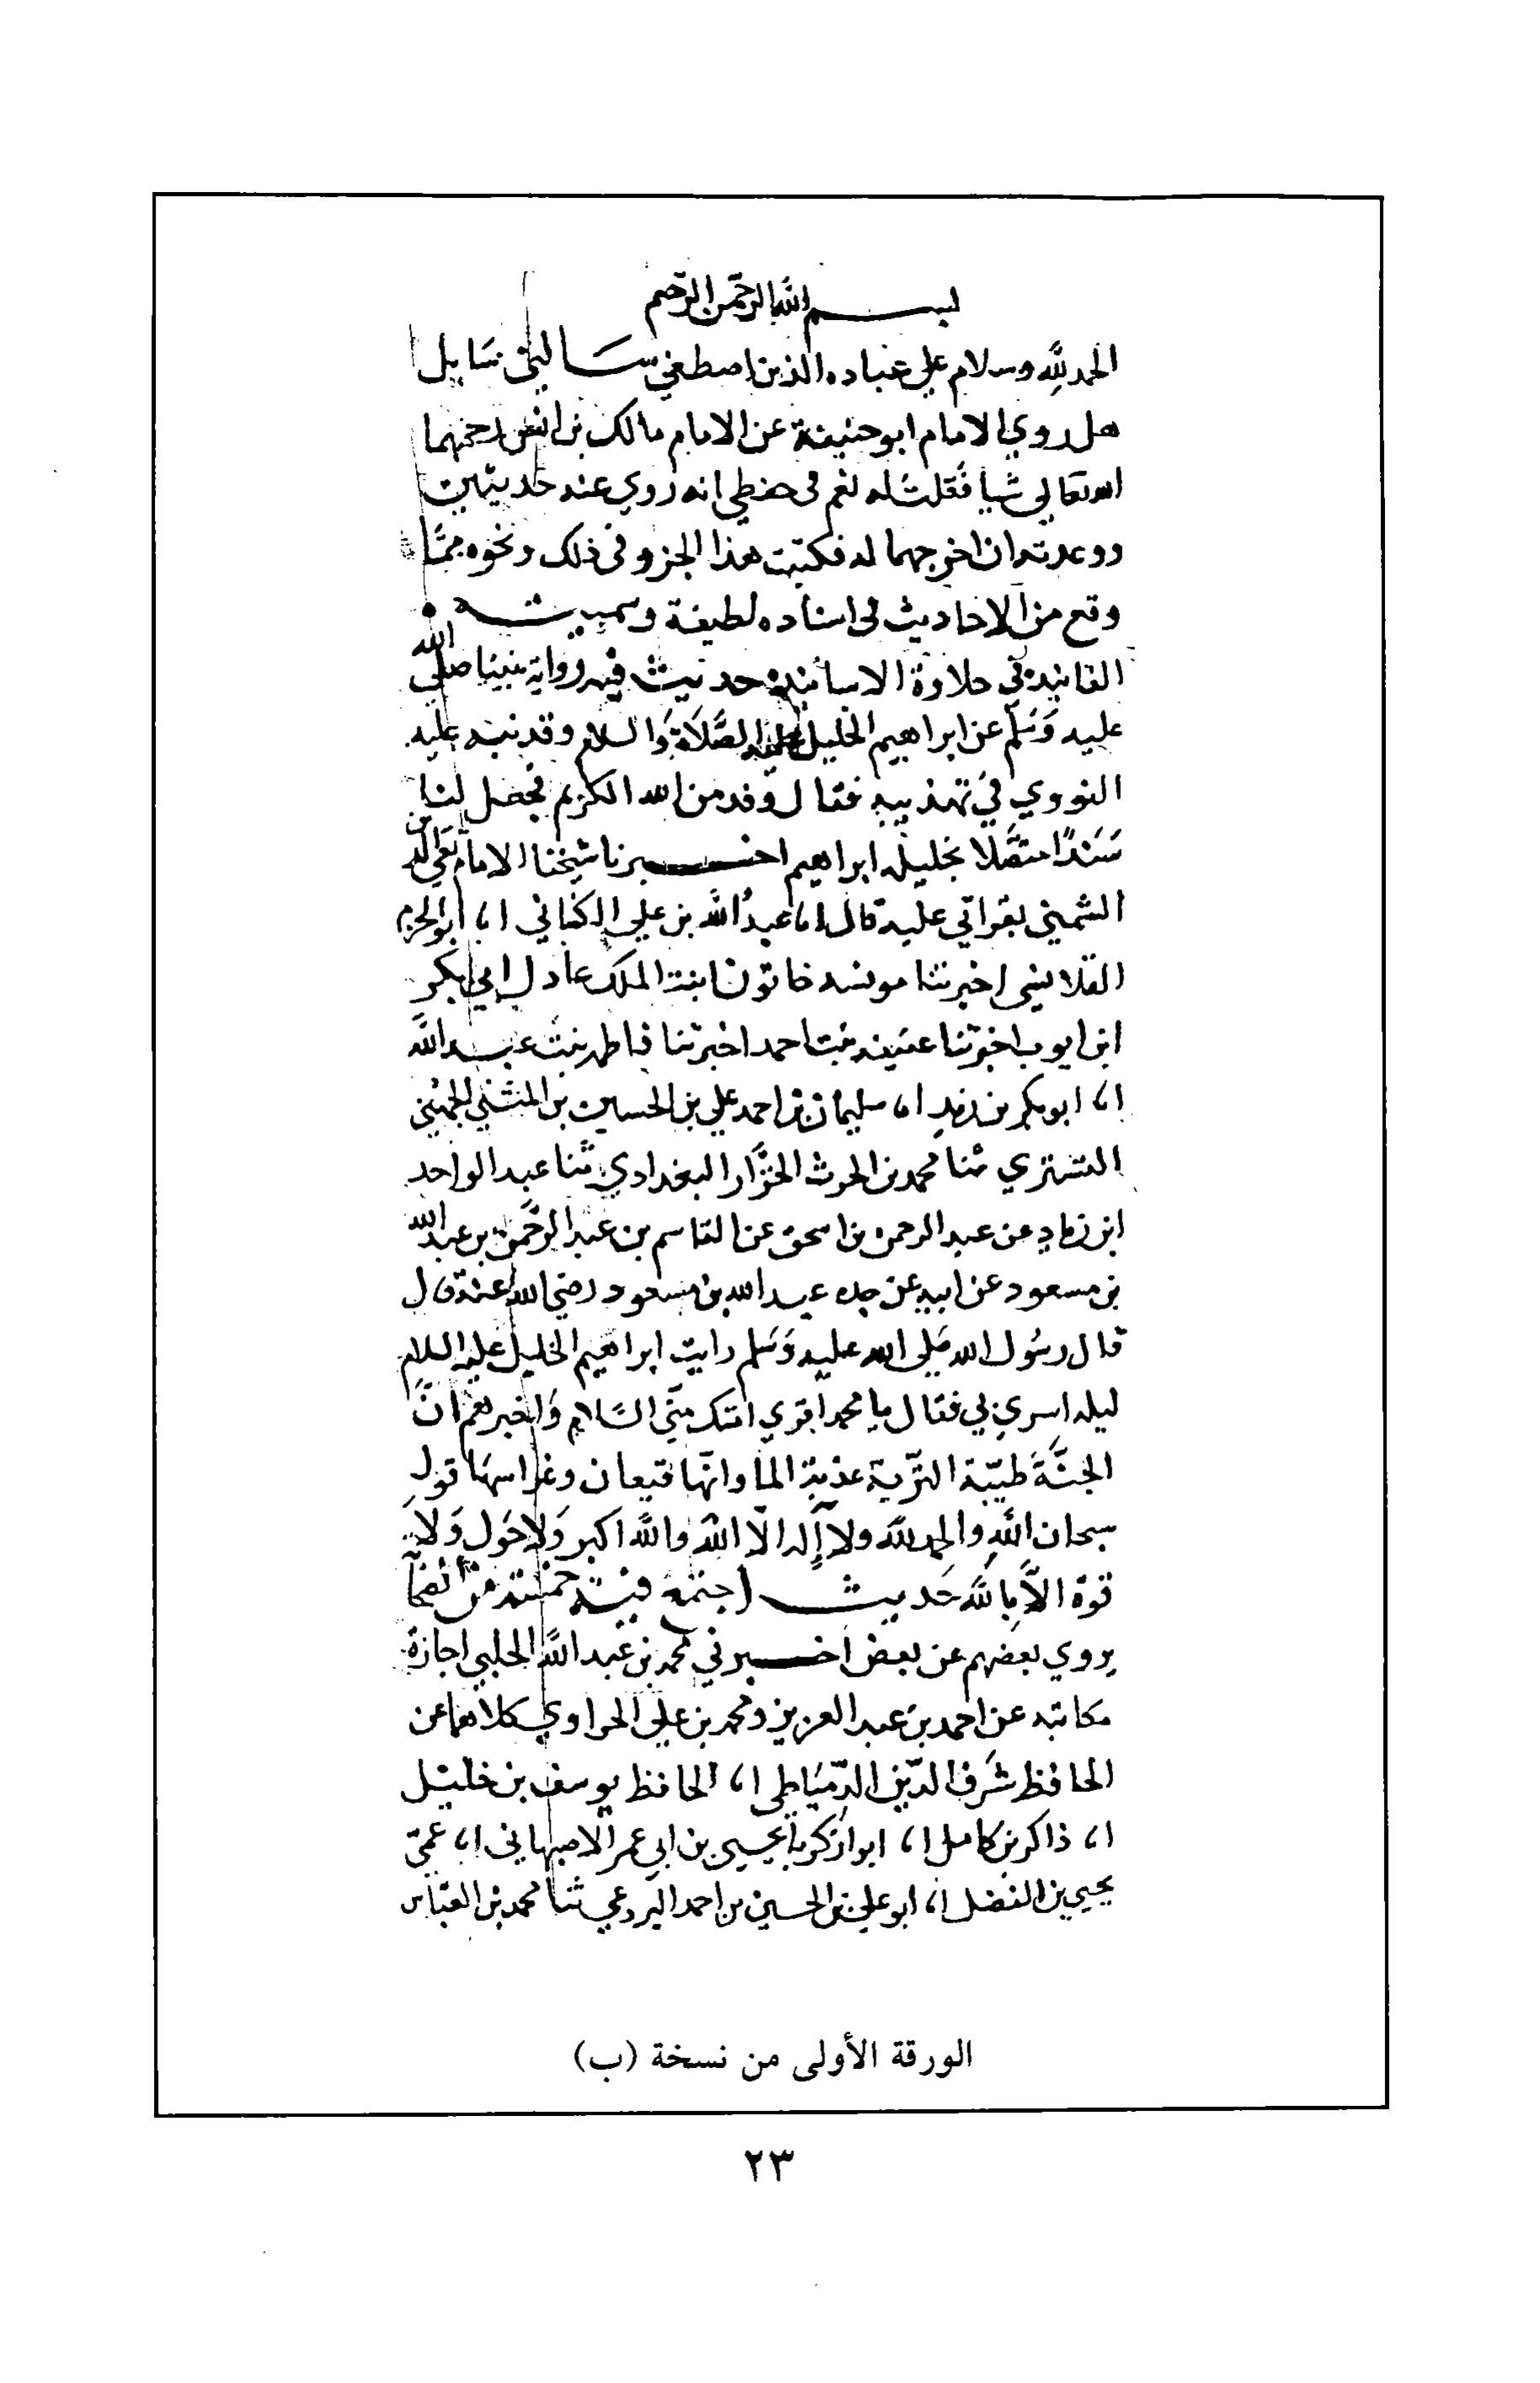 بسم الله الرحمن الرحيم
الحمد لله وسلام علي عباده الذين اصطفي سَالني سَايل
هل روي الامام ابو حنيفة عن الامام مالك بن انس رحمهما
الله تعالي شيا فقلت له نعم في حفظي انه روي عنه حديثين
ووعدته ان اخرجهما له فكتبت هذا الجزو في ذلك ونحوه ممّا
وقع من الاحاديث في اسناده لطيفة وسميته
الفانيد في حلاوة الاسانيد حديث فيه رواية نبينا صلي الله
عليه وَسَلّم عن ابراهيم الخليل عليه الصَّلَاة وَالسلام وقد نبه عليه
النووي في تهذيبه فقال وقد من الله الكريم فجعل لنا
سَنَدًا متصَّلا بخليله ابراهيم اخبرنا شيخنا الامام تقي الدين
الشمني بقراتي عليه قال انا عبدُ الله بن علي الكناني انا ابو الحرم
القلانيسي اخبرتنا مونسه خاتون ابنت الملك عادل ابي بكر
ابن ايوب اخبرتنا عفيفه بنت احمد اخبرتنا فاطمه بنت عبد الله
انا ابو بكر بن ريذه انا سليمان بن احمد علي بن الحسين بن المثني الجهني
التستري ثنا محمد بن الحرث الخزّاز البغدادي ثنا عبد الواحد
ابن زياد عن عبد الرحمن بن اسحق عن القاسم بن عبد الرحَّمن بن عبد الله
بن مسعود عن ابيه عن جده عبد الله بن مسعود رضي الله عنه قال
قال رسُول الله صَلي الله عليه وَسَلم رايت ابراهيم الخليل عليه السلام
ليله اسري بي فقال يا محمد اقري امتك منّي السّلام وَاخبرهم انّ
الجنَّةَ طيّبَة التّربة عذبة الما وانّها قيعان وغراسهَا قول
سبحان الله والحمد لله ولا إله الّا الله والله اكبر وَلا حَول وَلا
قوة الاَّ باللّه حَديث اجتمع فيه خمسة من
يروي بعضهم عن بعض اخبرني محمد بن عبد اللّه الحلبي اجازة
مكاتبه عن احمد بن عبد العزيز ومحمد بن علي الحراوي كلاهما عن
الحافظ شَرف الدّين الدّميَاطي انا الحافظ يوسف بن خليل
انا ذاكر بن كامل انا ابو زكريا يحيي بن ابي عمر الاصبهاني انا عمّي
يحيي بن الفضل انا ابو علي بن الحسين بن احمد البردعي ثنا محمد بن العبّاس
الورقة الأولى من نسخة (ب)
٢٣